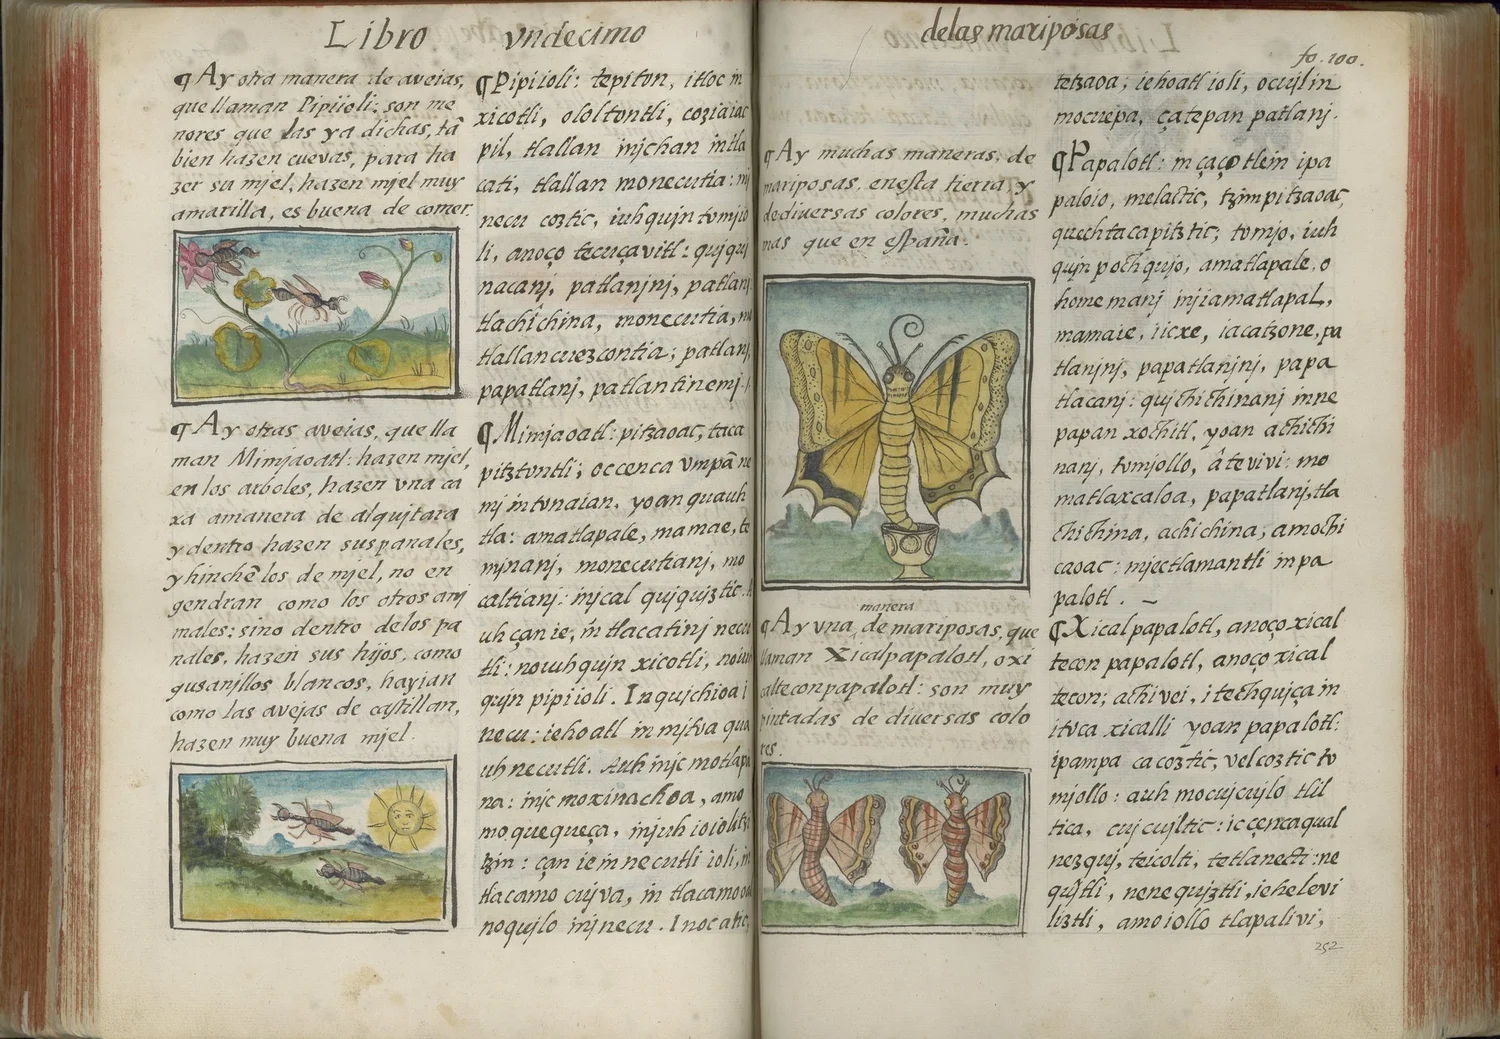 Libro vndecimo
¶ Ay otra manera de avejas,
que llaman Pipiioli: son me
nores que las ya dichas, tā
bien hazen cuevas, para ha
zer su mjel, hazen mjel muy
amarilla, es buena de comer.
¶ Ay otras avejas, que lla
man Mimjaoatl: hazen mjel,
en los arboles, hazen vna ca
xa amanera de alqujtara
y dentro hazen sus panales,
y hinchē los de mjel, no en
gendran como los otros anj
males: sino dentro de los pa
nales, hazen sus hijos, como
gusanjllos blancos, havian
como las avejas de castillan,
hazen muy buena mjel.
¶ Pipiioli: tepiton, itloc in
xicotli, ololtontli, coziaiac
pil, tlallan injchan intla
cati, tlallan monecutia:
necu coztic, iuhqujn tomjio
li, anoço tecuçavitl: qujquj
nacanj, patlanjnj, patlanj
tlachichina, monecutia,
tlallancuezcontia; patlanj,
papatlanj, patlantinemj.
¶ Mimjaoatl: pitzaoac, taca
pitztontli; oc cenca vmpā ne
mj in tonaian, yoan quauh
tla: amatlapale, mamae, te
mjnanj, monecutianj, mo
caltianj: injcal qujqujztic.
uh çan ie, in tlacatinj necu
tli: no iuhqujn xicotli, no iuh
qujn pipiioli. In qujchioa i
necu: iehoatl in mjtoa qua
uhnecutli. Auh injc motlapa
na: injc moxinachoa, amo
moquequeça, injuh ioiolitzi
tzin: çan ie in necutli ioli, in
tlacamo cujva, in tlacamo
noqujlo injnecu. In oc atic,
delas mariposas
fo. 100.
¶ Ay muchas maneras, de
mariposas, enesta tierra, y
dediversas colores, muchas
mas que en españa.
¶ Ay vna manera de mariposas, que
llaman Xicalpapalotl, o xi
caltecon papalotl: son muy
pintadas de diuersas colo
res.
tetzaoa; iehoatl ioli, ocujlin
mocuepa, çatepan patlanj.
¶ Papalotl: in çaço tlein ipa
paloio, melactic, tzimpitzaoac,
quechtacapitztic; tomjo, iuh
qujn pochqujo, amatlapale, o
home manj injiamatlapal,
mamaie, iicxe, iacatzone, pa
tlanjnj, papatlanjnj, papa
tlacanj: qujchichinanj in ne
papan xochitl, yoan achichi
nanj, tomjollo, ātevivi: mo
matlaxcaloa, papatlanj, tla
chichina, achichina; amochi
caoac: mjectlamantli in pa
palotl.
¶ Xicalpapalotl, anoço xical
tecon papalotl, anoço xical
tecon; achi vei, itechqujça in
itoca xicalli yoan papalotl:
ipampa ca coztic, vel coztic to
mjollo: auh mocujcujlo tlil
tica, cujcujltic: ic çenca qual
nezquj, teicolti, tetlanecti: ne
qujtli, nenequjztli, iehelevi
liztli, amo iollo tlapalivi,
252